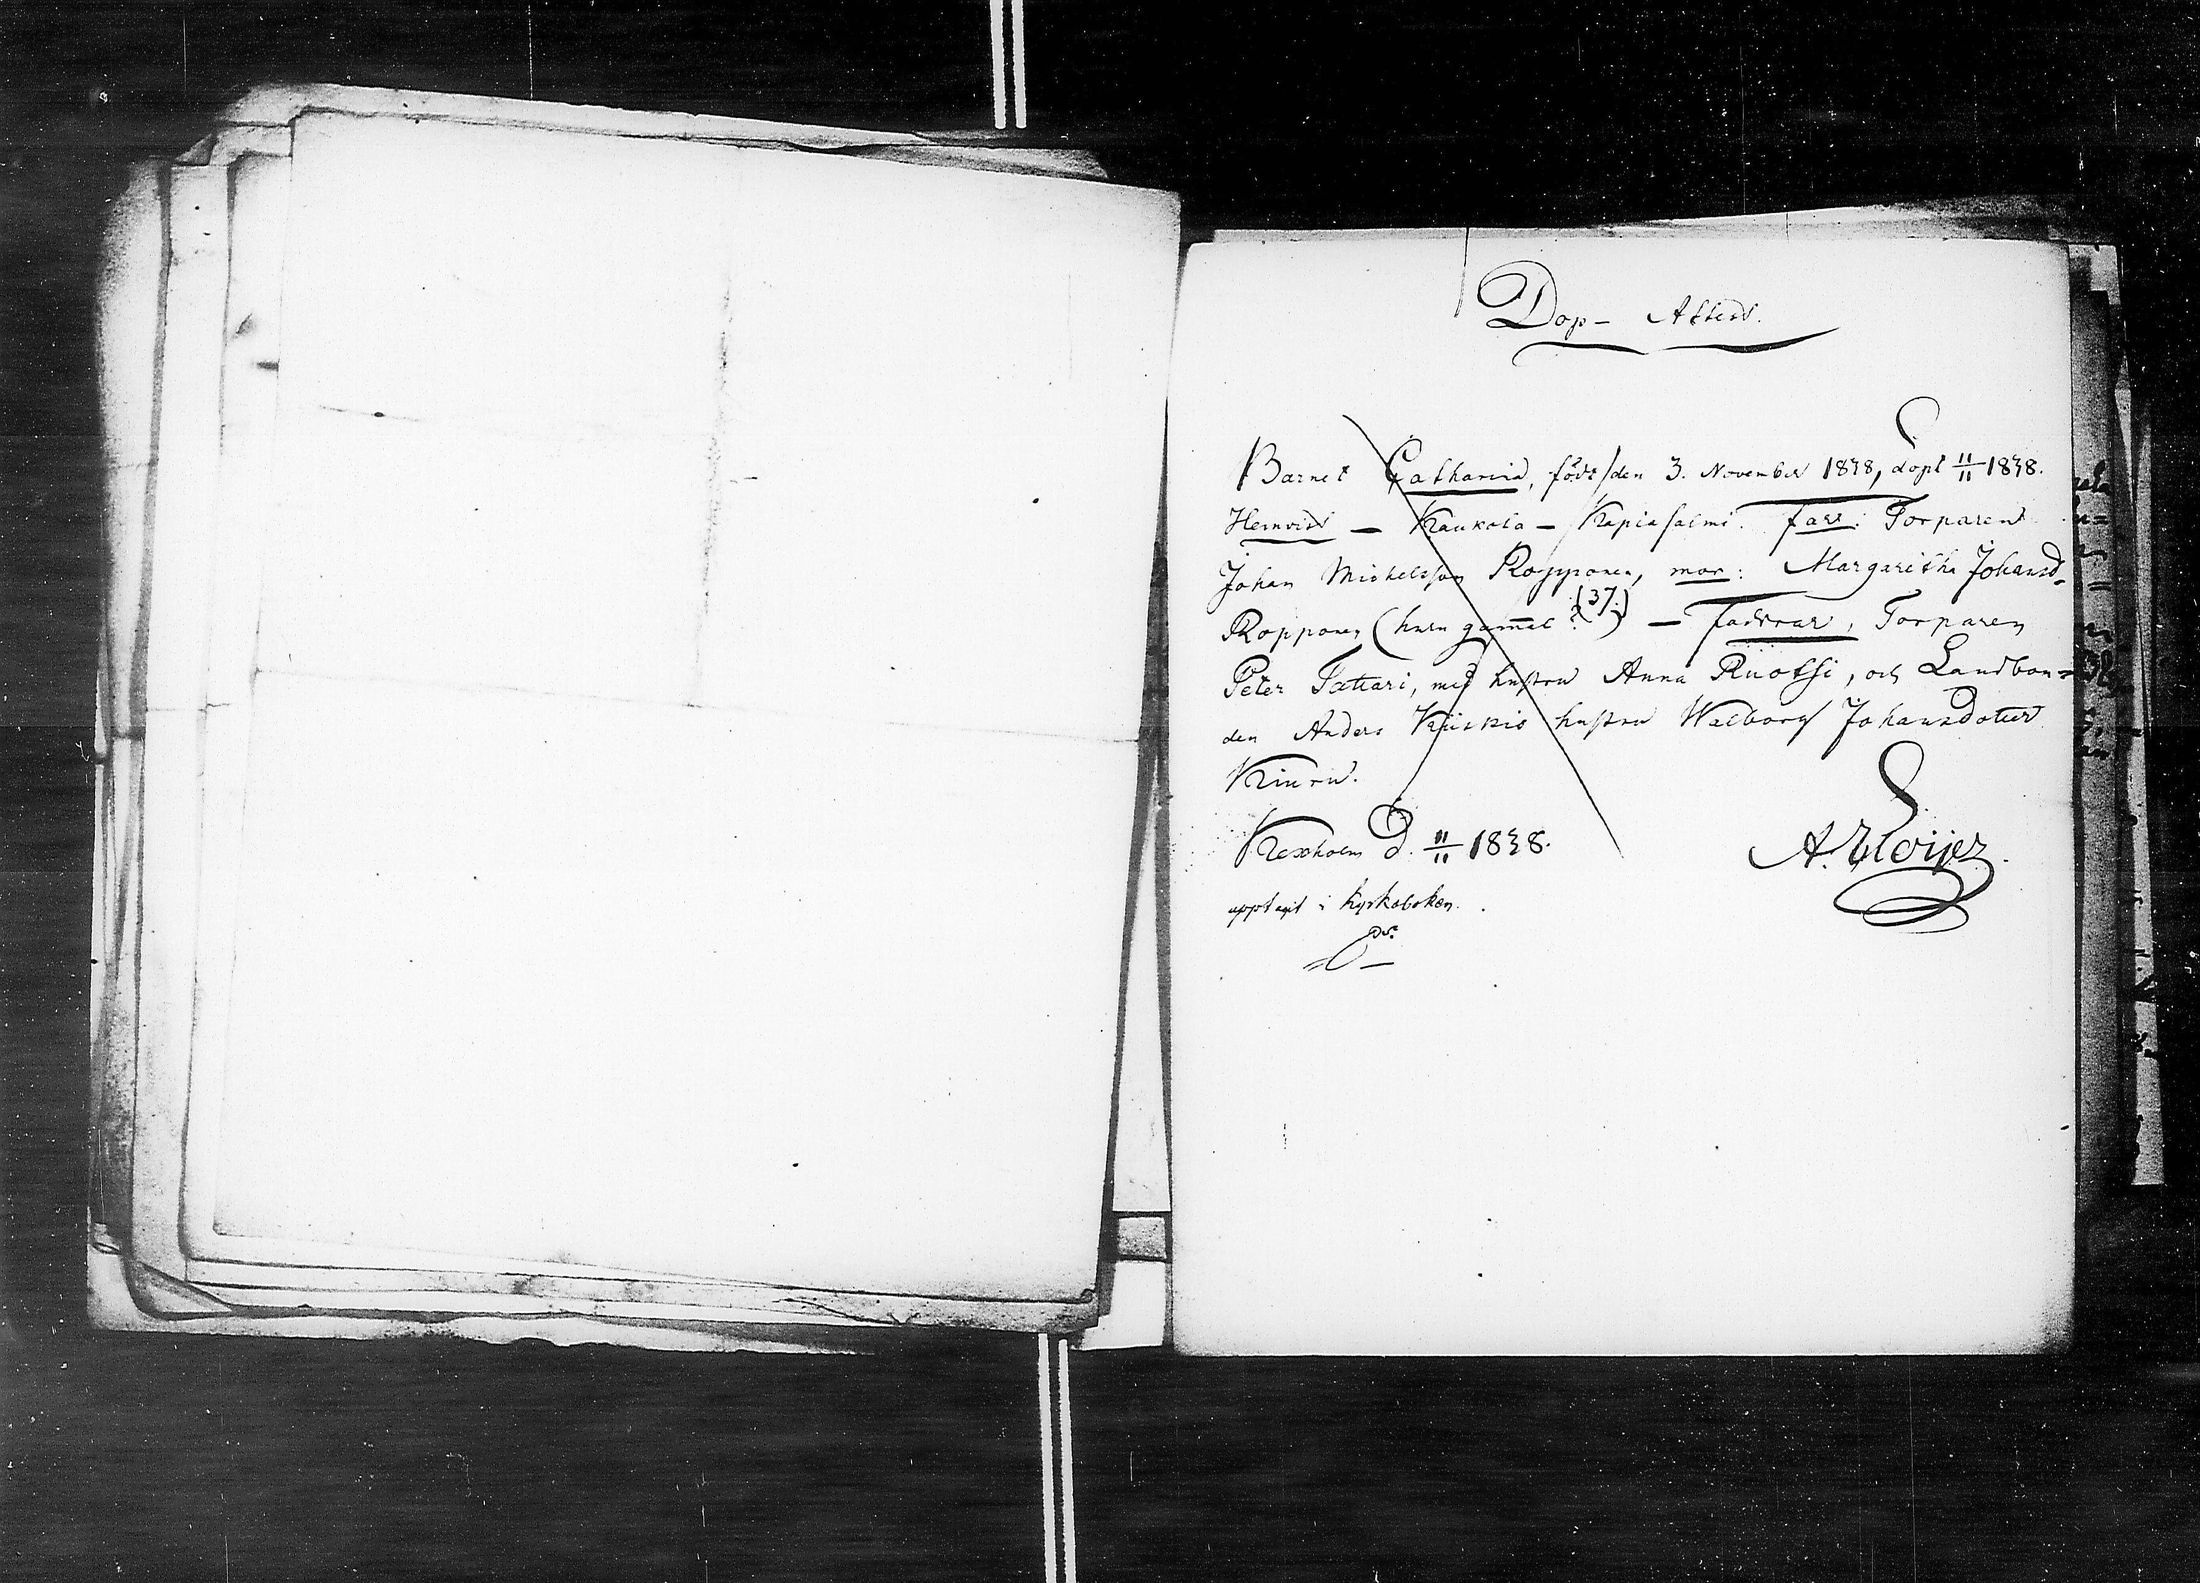 Dop- Attest.
Barnet Catharina, född den 3. November 1838, döpt 11/11 1838.
Hemvist – Kaukola – Kapiasalmi. fadr: Torparen
Johan Michelsson Ropponen, mor: Margaretha Johansd.
Ropponen (huru gammal? (37.)) – Faddrar, Torparen
Peter Tattari, med hustru Anna Ruotsi, och Landbon=
den Anders Kiiskis hustru Walborg Johansdotter
Kiuru.
Kexholm d. 11/11 1838.
upptagit i Kyrkoboken.